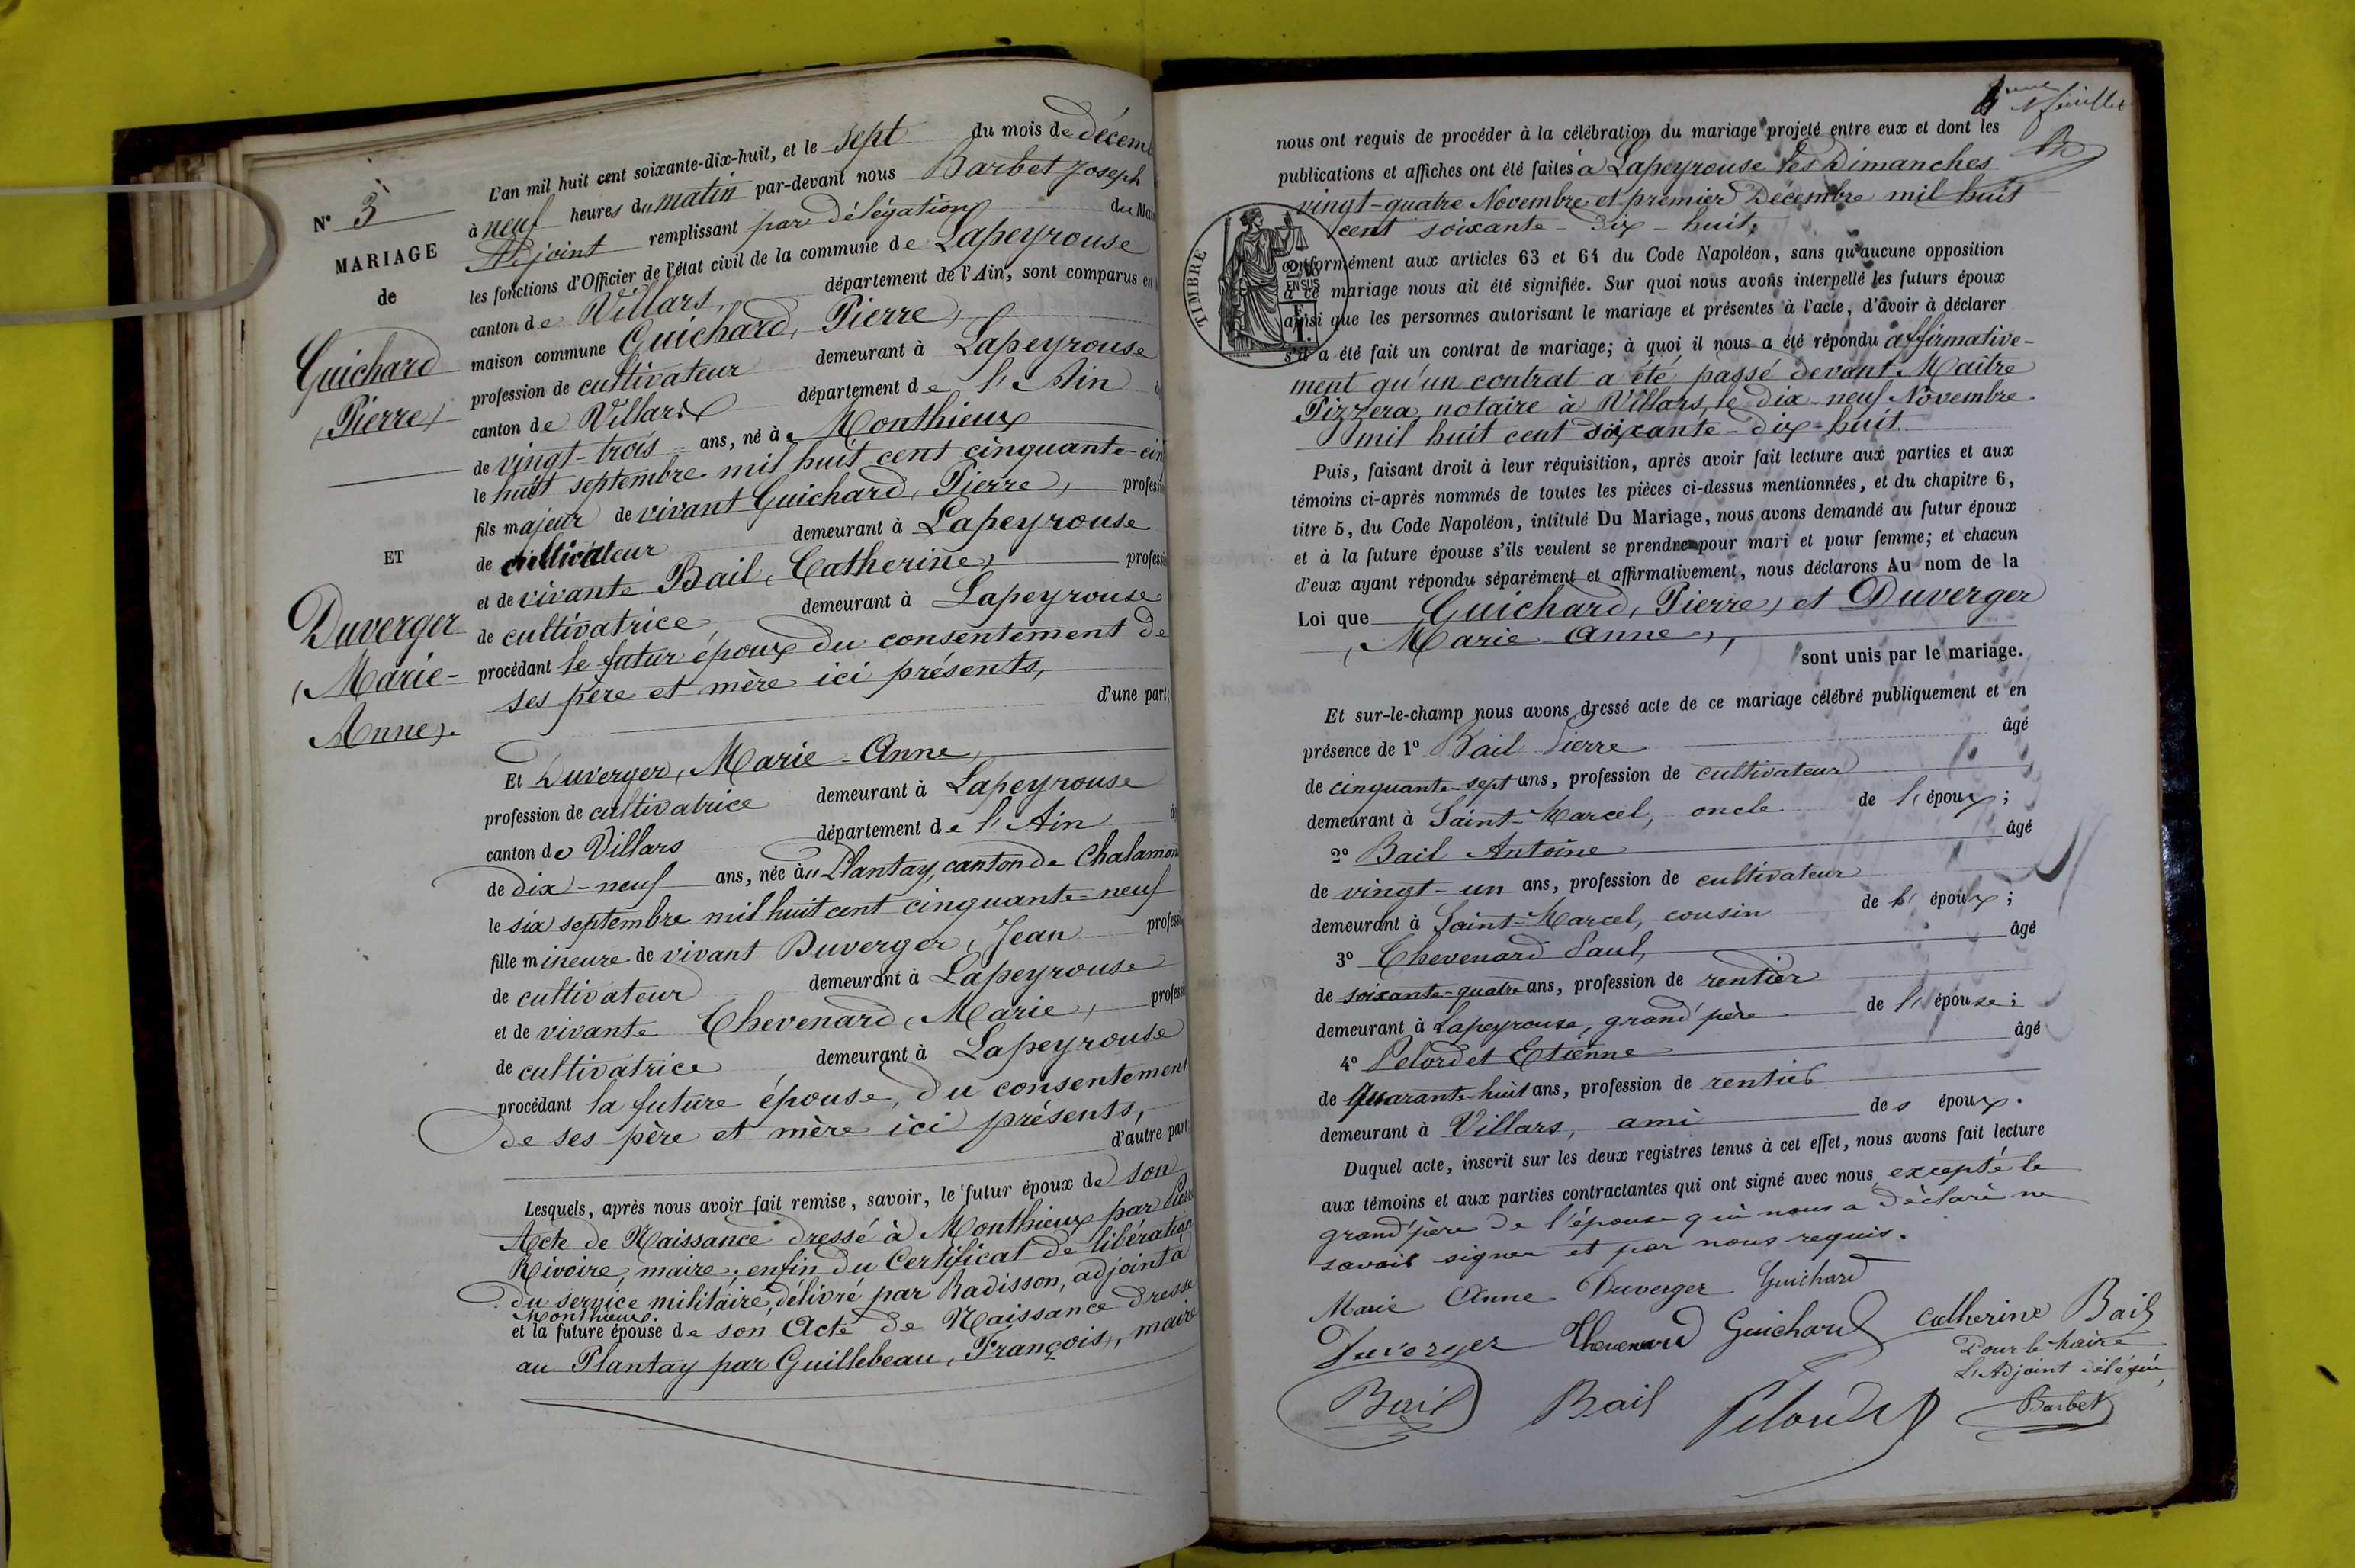 N° 3
MARIAGE
de
Guichard
(Pierre)
ET
Duverger
(Marie-
Anne).
L'an mil huit cent soixante-dix-huit, et le sept du mois de décem
à neuf heures du matin par-devant nous Barbet Joseph
Adjoint remplissant par délégation du Mai
les fonctions d'Officier de l'état civil de la commune de Lapeyrouse
canton de Villars, département de l'Ain, sont comparus en
maison commune Guichard, Pierre,
profession de cultivateur demeurant à Lapeyrouse
canton de Villars département de l'Ain
de vingt-trois ans, né à Monthieux
le huit septembre mil huit cent cinquante-cin
fils majeur de vivant Guichard, Pierre, profession
de cultivateur demeurant à Lapeyrouse
et de vivante Bail, Catherine, profession
de cultivatrice demeurant à Lapeyrouse
procédant le futur époux du consentement de
ses père et mère ici présents,
d'une part;
Et Duverger, Marie-Anne,
profession de cultivatrice demeurant à Lapeyrouse
canton de Villars département de l'Ain
de dix-neuf ans, née au Plantay, canton de Chalamon
le six septembre mil huit cent cinquante-neuf
fille mineure de vivant Duverger, Jean profession
de cultivateur demeurant à Lapeyrouse
et de vivante Chevenard, Marie, profession
de cultivatrice demeurant à Lapeyrouse
procédant la future épouse, du consentement
de ses père et mère ici présents,
d'autre part
Lesquels, après nous avoir fait remise, savoir, le futur époux de son
Acte de Naissance dressé à Monthieux par
Rivoire, maire; enfin du Certificat de libération
du service militaire, délivré par Radisson, adjoint à
Monthieux.
et la future épouse de son Acte de Naissance dressé
au Plantay par Guillebeau, François, maire
feuillet
nous ont requis de procéder à la célébration du mariage projeté entre eux et dont les
publications et affiches ont été faites à Lapeyrouse les Dimanches
vingt-quatre Novembre et premier Décembre mil huit
cent soixante-dix-huit,
TIMBRE
EN SUS
conformément aux articles 63 et 64 du Code Napoléon, sans qu'aucune opposition
à ce mariage nous ait été signifiée. Sur quoi nous avons interpellé les futurs époux
ainsi que les personnes autorisant le mariage et présentes à l'acte, d'avoir à déclarer
s'il a été fait un contrat de mariage; à quoi il nous a été répondu affirmative-
ment qu'un contrat a été passé devant Maître
Pizzera, notaire à Villars, le dix-neuf Novembre
mil huit cent soixante-dix-huit.
Puis, faisant droit à leur réquisition, après avoir fait lecture aux parties et aux
témoins ci-après nommés de toutes les pièces ci-dessus mentionnées, et du chapitre 6,
titre 5, du Code Napoléon, intitulé Du Mariage, nous avons demandé au futur époux
et à la future épouse s'ils veulent se prendre pour mari et pour femme; et chacun
d'eux ayant répondu séparément et affirmativement, nous déclarons Au nom de la
Loi que Guichard, Pierre, et Duverger
(Marie-Anne),
sont unis par le mariage.
Et sur-le-champ nous avons dressé acte de ce mariage célébré publiquement et en
présence de 1° Bail Pierre âgé
de cinquante-sept ans, profession de cultivateur
demeurant à Saint-Marcel, oncle de l'époux;
2° Bail Antoine âgé
de vingt-un ans, profession de cultivateur
demeurant à Saint-Marcel, cousin de l'époux;
3° Chevenard Paul, âgé
de soixante-quatre ans, profession de rentier
demeurant à Lapeyrouse, grand'père de l'épouse;
4° Pelordet Etienne âgé
de quarante-huit ans, profession de rentier
demeurant à Villars, ami des époux.
Duquel acte, inscrit sur les deux registres tenus à cet effet, nous avons fait lecture
aux témoins et aux parties contractantes qui ont signé avec nous excepté le
grand'père de l'épouse qui nous a déclaré ne
savoir signer et par nous requis.
Marie Anne Duverger Guichard
Duverger Chevenard Guichard Catherine Bail
Pour le Maire
L'Adjoint délégué,
Bail Bail Pelordet Barbet